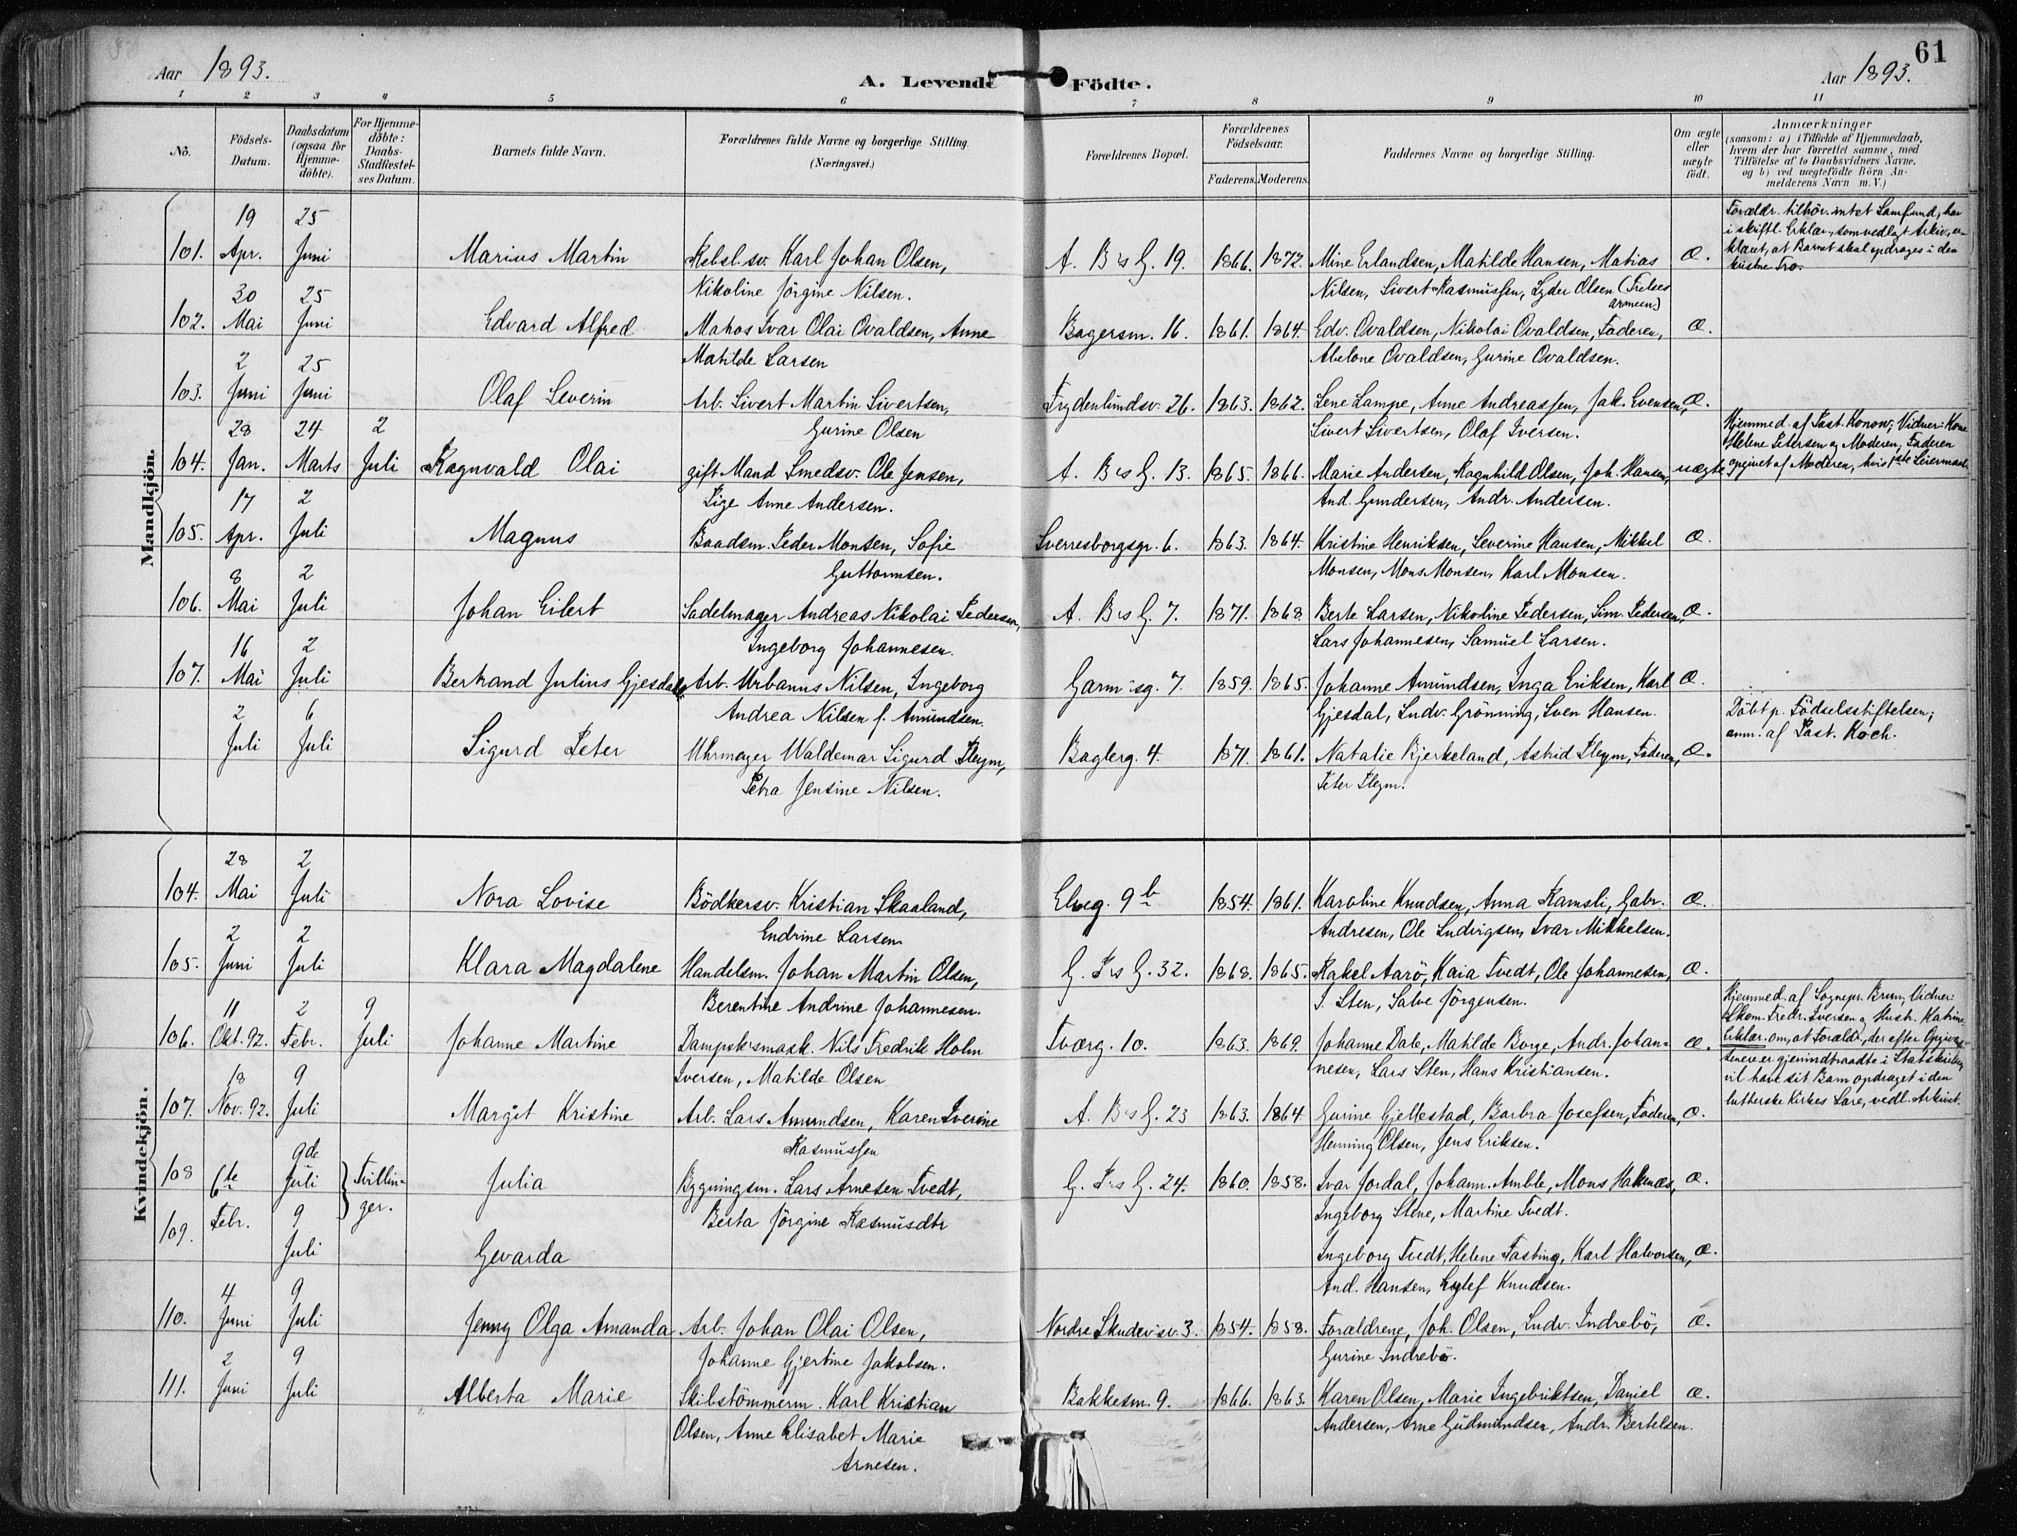 61
Aar 1893.
A. Levende Födte.
Aar 1893.
1 2 3 4 5 6 7 8 9 10 11
No.
Födsels-Datum.
Daabsdatum (ogsaa for Hjemme-döbte).
For Hjemme-döbte: Daabs-Stadfæstel-ses Datum.
Barnets fulde Navn.
Forældrenes fulde Navne og borgerlige Stilling. (Næringsvei.)
Forældrenes Bopæl.
Forældrenes Födselsaar.
Faderens. Moderens.
Faddernes Navne og borgerlige Stilling.
Om ægte eller uægte födt.
Anmærkninger
(saasom: a) i Tilfælde af Hjemmedaab, hvem der har forrettet samme, med Tilföielse af to Daabsvidners Navne, og b) ved uægtefödte Börn An-melderens Navn m. V.)
Mandkjön.
101. 19 Apr. 25 Juni Marius Martin Karl Johan Olsen, A. B s G. 19. 1866. 1872. Mine Erlandsen, Matilde Hansen, Matias Æ.
Nikoline Jörgine Nilsen. Nilsen, Sivert Rasmussen, Lyder Olsen (Frelses armeen)
Forældr. tilhör. intet Samfund, har
i skriftl. Erklær., som vedlagt Arkiv, er-
klæret, at Barnet skal opdrages i den
kristne Tro.
102. 30 Mai 25 Juni Edvard Alfred Matros Ivar Olai Ovaldsen, Anne Bagersm. 16. 1861. 1864. Edv. Ovaldsen, Nikolai Ovaldsen, Faderen, Æ.
Matilde Larsen Abelone Ovaldsen, Gurine Ovaldsen.
103. 2 Juni 25 Juni Olaf Severin Arb. Sivert Martin Sivertsen, Frydenlundsv. 26. 1863. 1862. Lene Lampe, Anne Andreassen, Jak. Evensen, Æ.
Gurine Olsen Sivert Sivertsen, Olaf Iversen.
104. 28 Jan. 24 Marts 2 Juli Ragnvald Olai gift Mand Smedsv. Ole Jensen, A. B s G. 13. 1865. 1866. Marie Andersen, Ragnhild Olsen, Joh. Hansen, uægte
Pige Anne Andersen. And. Gundersen, Andr. Andersen.
Hjemmed. af Past. Konow, Vidner: Kone
Helene Pedersen og Moderen, Faderen
opgivet af Moderen, hvis 1ste Leiermaal
105. 17 Apr. 2 Juli Magnus Baadsm. Peder Monsen, Sofie Sverresborgsgr. 6. 1863. 1864. Kristine Henriksen, Severine Hansen, Mikkel Æ.
Guttormsen. Monsen, Mons Monsen, Karl Monsen.
106. 8 Mai 2 Juli Johan Eilert Sadelmager Andreas Nikolai Pedersen, A. B s G. 7. 1871. 1868. Berte Larsen, Nikoline Pedersen, Sim. Pedersen, Æ.
Ingeborg Johannesen. Lars Johannesen, Samuel Larsen.
107. 16 Mai 2 Juli Bertrand Julius Gjesdal Arb. Urbanus Nilsen, Ingeborg Garm sg. 7. 1859. 1865. Johanne Amundsen, Inga Eriksen, Karl Æ.
Andrea Nilsen f. Amundsen. Gjesdal, Ludv. Grönning, Sven Hansen.
2 Juli 6 Juli Sigurd Peter Uhrmager Waldemar Sigurd Pleym, Baglerg. 4. 1871. 1861. Natalie Bjerkeland, Astrid Pleym, Faderen, Æ.
Petra Jensine Nilsen. Peter Pleym.
Döbt p. Födselsstiftelsen;
anm. af Past. Koch.
Kvindekjön.
104. 28 Mai 2 Juli Nora Lovise Bödkersv. Kristian Skaaland, Elveg. 9 b 1854. 1861. Karoline Knudsen, Anna Ramsli, Gabr. Æ.
Endrine Larsen Andresen, Ole Ludvigsen, Ivar Mikkelsen.
105. 2 Juni 2 Juli Klara Magdalene Handelsm. Johan Martin Olsen, G. K s G. 32. 1868. 1865. Rakel Aarö, Maia Tvedt, Ole Johannesen, Æ.
Berentine Andrine Johannesen. S. Sten, Salve Jörgensen.
106. 11 Okt. 92. 2 Febr. 9 Juli Johanne Martine Dampsksmask. Nils Fredrik Holm Tværg. 10. 1863. 1869. Johanne Dale, Matilde Borge, Andr. Johan- Æ.
Iversen, Matilde Olsen nesen, Lars Sten, Hans Kristiansen.
Hjemmed. af Sognepr. Brun, Vidner:
Skom. Fredr. Iversen og Hust. Katrine
Erklær. om, at Forældr., der efter Opgivet
er gjenindtraadte i Statskirken,
vil have sit Barn opdraget i den
lutherske Kirkes Lære, vedl. Arkivet.
107. 18 Nov. 92. 9 Juli Margit Kristine Arb. Lars Amundsen, Karen Iverine A. B s G. 23 1863. 1864 Gurine Gjellestad, Barbra Josefsen, Faderen, Æ.
Rasmussen Henning Olsen, Jens Eriksen.
108 6te Febr. 9de Juli Tvillin-ger. Julia Bygningsm. Lars Arnesen Tvedt, G. K s G. 24. 1860. 1858. Ivar Jordal, Johann. Amble, Mons Haknæs, Æ.
Berta Jörgine Rasmusdtr Ingeborg Stene, Martine Tvedt.
109. 9 Juli Gevarda Ingeborg Tvedt, Helene Fasting, Karl Halvorsen, Æ.
And. Hansen, Eylef Knudsen.
110. 4 Juni 9 Juli Jenny Olga Amanda Arb. Johan Olai Olsen, Nordre Skudev sv. 3. 1854. 1858. Forældrene, Joh. Olsen, Ludv. Indrebö, Æ.
Johanne Gjertine Jakobsen. Gurine Indrebö.
111. 2 Juni 9 Juli Alberta Marie Skibstömmerm. Karl Kristian Bakkesm. 9. 1866. 1863. Karen Olsen, Marie Ingebriktsen, Daniel Æ.
Olsen, Anne Elisabet Marie Andersen, Arne Gudmundsen, Andr. Bertelsen.
Arnesen.